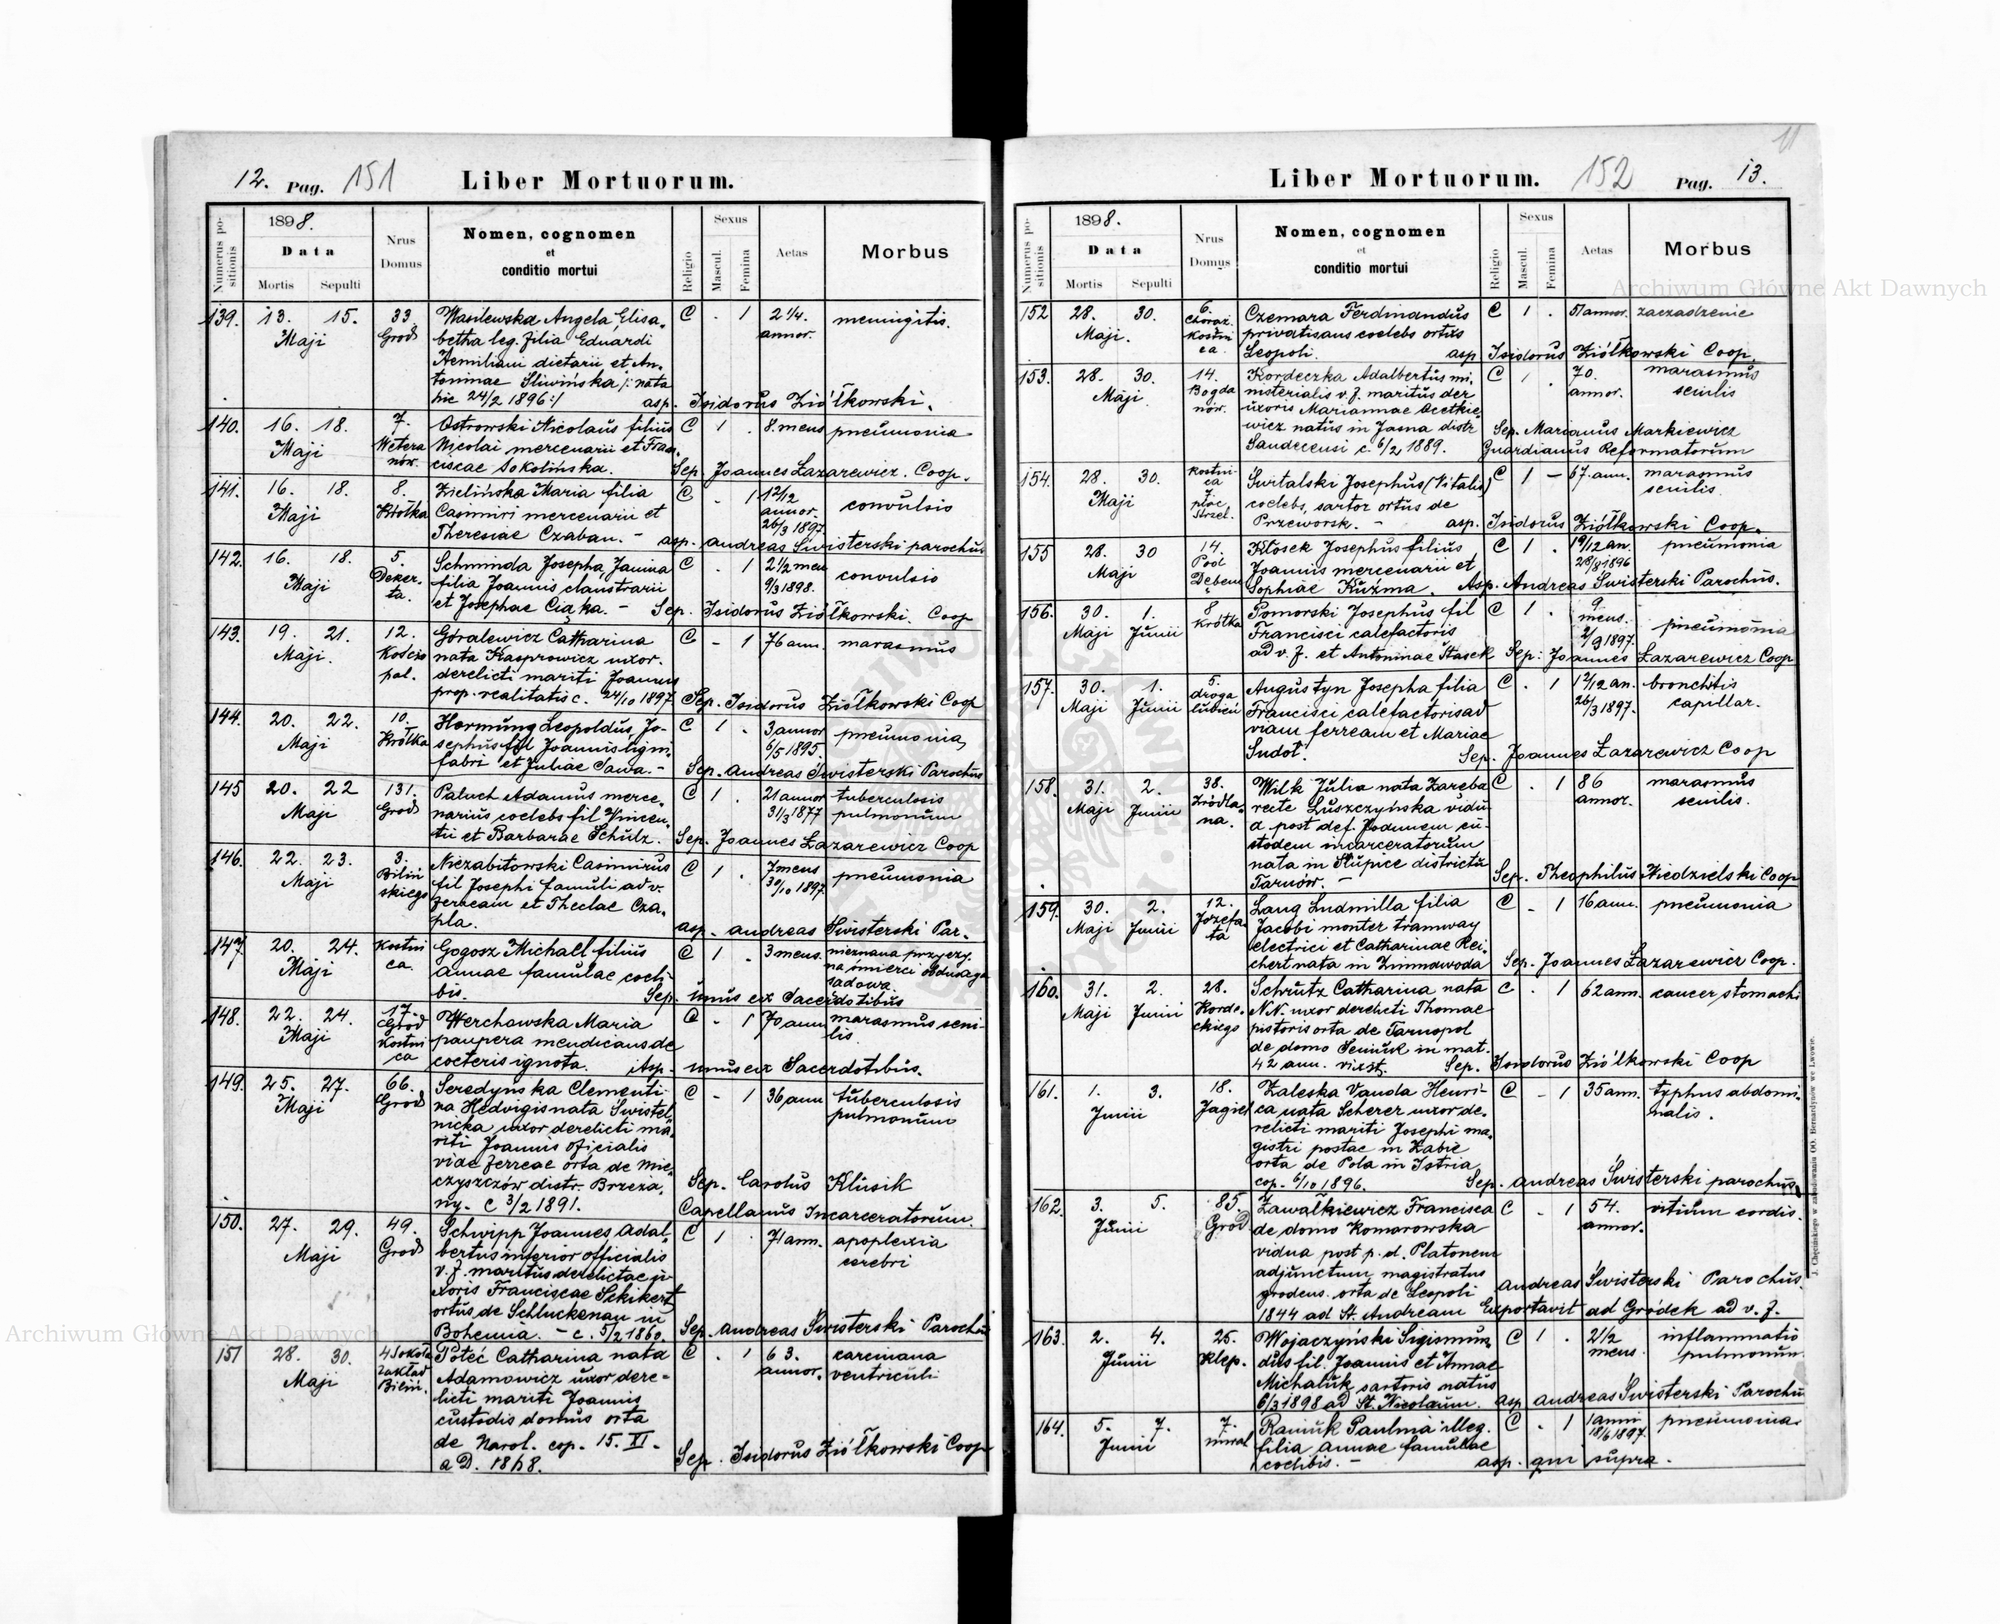 12. Pag. 151 Liber Mortuorum.
Numerus positionis
1898.
Data
Mortis Sepulti
Nrus Domus
Nomen, cognomen
et
conditio mortui
Religio
Sexus
Mascul. Femina
Aetas
Morbus
139. 13. 15. Maji 33 Grod
Wasilewska Angela Elisa-
betha leg. filia Eduardi
Aemiliani dietarii et An-
toninae Śliwińska /: nata
hic 24/2 1896 :/
C . 1 2 1/4. annor. meningitis.
asp. Isidorus Ziółkowski.
140. 16. 18. Maji 7. Wetera nów.
Ostrowski Nicolaus filius
Nicolai mercenarii et Fran-
ciscae Sokolińska.
C 1 . 8. mens pneumonia
Sep. Joannes Łazarewicz. Coop.
141. 16. 18. Maji 8. Krótka
Zielińska Maria filia
Casimiri mercenarii et
Theresiae Czaban. -
C - 1 1 2/12 annor. 26/3 1897 convulsio
asp. Andreas Świsterski parochus
142. 16. 18. Maji 5. Dekerta.
Schminda Josepha, Janina
filia Joannis claustrarii
et Josephae Ciąka. -
C . 1 2 1/2 men 9/3 1898. convulsio
Sep. Isidorus Ziółkowski. Coop
143. 19. 21. Maji. 12. Kościo pol.
Góralewicz Catharina
nata Kasprowicz uxor.
derelicti mariti Joannis
prop. realitatis c. 24/10 1897
C - 1 76 ann. marasmus
Sep. Isidorus Ziółkowski Coop
144. 20. 22. Maji 10. Krótka
Hormung Leopoldus, Jo-
sephus fil Joannis ligni
fabri et Juliae Sawa. -
C 1 . 3 annor 6/5 1895 pneumonia
Sep. Andreas Świsterski Parochus
145 20. 22 Maji 131. Grod
Paluch Adamus merce-
narius coelebs fil Vincen-
tii et Barbarae Schulz.
C 1 . 21 annor 31/3 1877 tuberculosis
pulmonum
Sep. Joannes Łazarewicz Coop
146. 22. 23. Maji 3. Biliń skiego
Niezabitowski Casimirus
fil Josephi famuli ad v.
ferream et Theclae Cza-
pla.
C 1 . 7 mens 30/10 1897 pneumonia
asp. Andreas Świsterski Par.
147 20. 24. Maji Kostni ca.
Gogosz Michall filius
Annae famulae coeli-
bis.
C 1 . 3 mens. nieznana przyczy-
na śmierci obdukcya
sądowa.
Sep. unus ex Sacerdotibus
148. 22. 24. Maji 17. Grod Kostni ca
Werchowska Maria
paupera mendicans de
coeteris ignota.
C - 1 70 ann marasmus seni-
lis
Asp. unus ex Sacerdotibus.
149. 25. 27. Maji 66. Grod
Seredyńska Clementi-
na Hedvigis nata Świstel-
nicka uxor derelicti ma-
riti Joannis oficialis
viae ferreae orta de Mie-
czyszczów distr. Brzeża-
ny. c 3/2 1891.
C - 1 36 ann tuberculosis
pulmonum
Sep. Carolus Klusik
Capellanus Incarceratorum.
150. 27. 29. Maji 49. Grod
Schwipp Joannes Adal-
bertus inferior officialis
v. f. maritus derelictae u-
xoris Franciscae Sekikert
ortus de Schluckenau in
Bohemia. - c. 5/2 1860.
C 1 . 71 ann. apoplexia
cerebri
Sep. Andreas Świsterski Parochus
151 28. 30. Maji 4 Sokoła zakład Biliń.
Poteć Catharina nata
Adamowicz uxor dere-
licti mariti Joannis
custodis domus orta
de Narol. cop. 15. XI.
a D. 1868.
C . 1 63. annor. carcinana
ventriculi
Sep. Isidorus Ziółkowski Coop
Liber Mortuorum. 152 Pag. 13.
11
Numerus positionis
1898.
Data
Mortis Sepulti
Nrus Domus
Nomen, cognomen
et
conditio mortui
Religio
Sexus
Mascul. Femina
Aetas
Morbus
152 28. 30. Maji. 6. Chorąż. Kostni ca.
Czemara Ferdinandus
privatisans coelebs ortus
Leopoli.
C 1 . 51 annor. zaczadzenie
asp Isidorus Ziółkowski Coop.
153. 28. 30. Maji 14. Bogda nów.
Kordeczka Adalbertus mi-
nisterialis v. f. maritus der
uxoris Mariannae Ocetkie-
wicz natus in Jasna distr
Sandecensi c. 6/2 1889.
C 1 . 70. annor. marasmus
senilis
Sep. Marianus Markiewicz
Guardianus Reformatorum
154. 28. 30. Maji Kostni- ca 7. plac Strzel.
Świtalski Josephus (Vitalis)
coelebs, sartor ortus de
Przeworsk. -
C 1 - 67. ann. marasmus
senilis.
asp. Isidorus Ziółkowski Coop.
155 28. 30 Maji 14. Pod Dębem
Kłosek Josephus filius
Joannis mercenarii et
Sophiae Kuźma.
C 1 . 1 9/12 an. 28/8 1896 pneumonia
Asp. Andreas Świsterski Parochus.
156. 30. 1. Maji Junii 8 Krótka
Pomorski Josephus fil
Francisci calefactoris
ad v. f. et Antoninae Stasek
C 1 . 9 mens. 2/9 1897. pneumonia
Sep: Joannes Łazarewicz Coop
157. 30. 1. Maji Junii 5. droga lubień
Augustyn Josepha filia
Francisci calefactoris ad
viam ferream et Mariae
Sudot.
C . 1 1 2/12 an. 26/3 1897. bronchitis
capillar.
Sep. Joannes Łazarewicz Coop
158. 31. 2. Maji Junii 38. Źródla- na.
Wilk Julia nata Zaręba
recte Łuszczyńska vidu
a post def. Podunem cu-
stodem incarceratorum
nata in Słupice districtu
Tarnów. -
C . 1 86 annor. marasmus
senilis.
Sep. Theophilus Niedzielski Coop
159. 30. 2. Maji Junii 12. Józefa ta
Lang Ludmilla filia
Jacobi monter tramway
electrici et Catharinae Rei-
chert nata in Zimnawoda
C - 1 16 ann. pneumonia
Sep. Joannes Łazarewicz Coop.
160. 31. 2. Maji Junii 28. Korde- ckiego
Schrutz Catharina nata
N.N. uxor derelicti Thomae
pistoris orta de Tarnopol
de domo Seniuk in mat.
42 ann. vixit.
C . 1 62 ann. cancer stomachi
Sep. Isidorus Ziółkowski Coop
161. 1. 3. Junii 18. Jagiel
Zaleska Vanda Henri-
ca nata Scherer uxor de-
relicti mariti Josephi ma-
gistri postae in Żabie
orta de Pola in Istria
cop. 6/10 1896.
C - 1 35 ann. typhus abdomi-
nalis.
Sep. Andreas Świsterski parochus
162. 3. 5. Junii 85. Grod
Zawałkiewicz Francisca
de domo Komorowska
vidua post p. d. Platonem
adjunctum magistratus
grodens. orta de Leopoli
1844 ad St. Andream
C - 1 54. annor. vitium cordis.
Andreas Świsterski Parochus.
Exportavit ad Gródek ad v. f.
163. 2. 4. Junii 25. Klep.
Wojaczyński Sigismun-
dus fil. Joannis et Annae
Michaluk sartoris natus
6/3 1898 ad St. Nicolaum.
C 1 . 2 1/2 mens. inflammatio
pulmonum.
asp Andreas Świsterski Parochu
164. 5. 7. Junii 7. mural
Raniuk Paulina illeg.
filia Annae famulae
coelibis. -
C . 1 1 ann. 18/6 1897. pneumonia
asp. qui supra.
J. Chęcińskiego w zabudowaniu OO. Bernardynów we Lwowie.
Archiwum Główne Akt Dawnych
Archiwum Główne Akt Dawnych